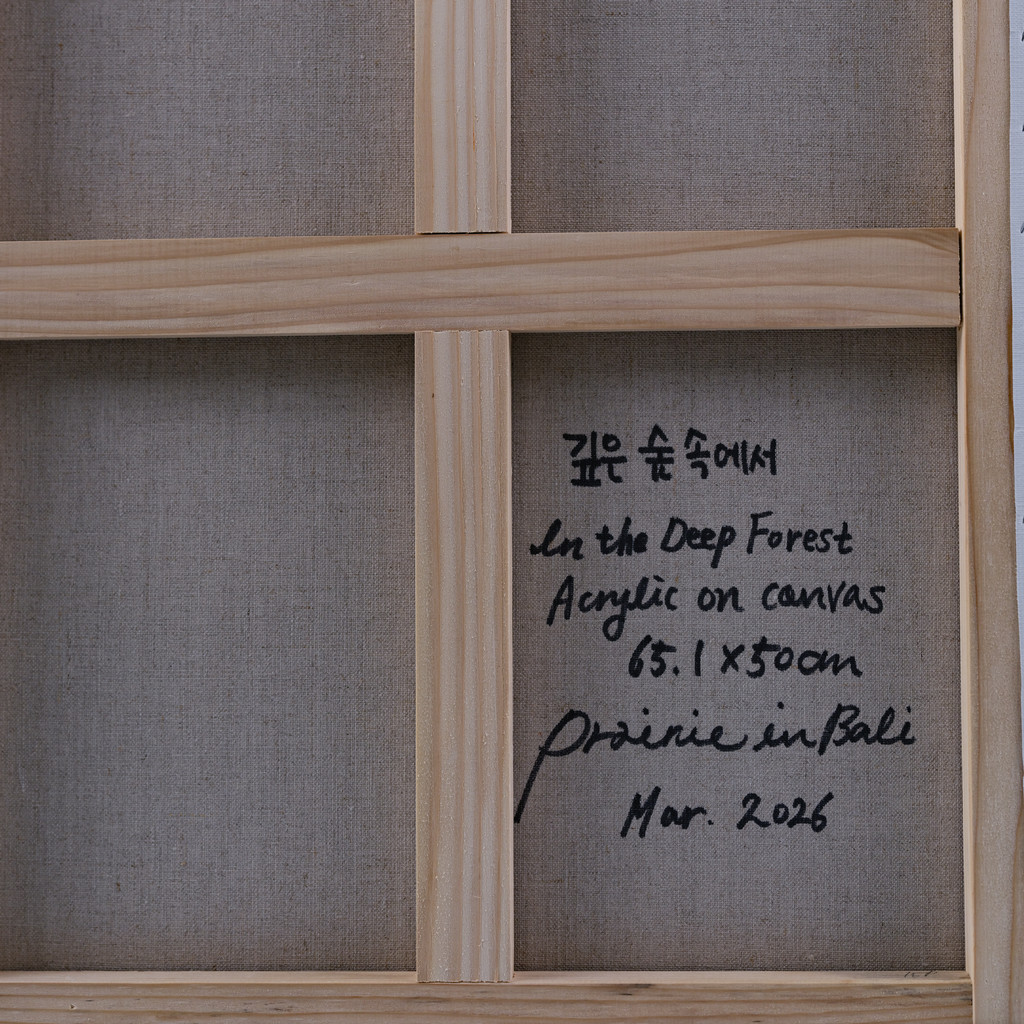 깊은 숲 속에서
In the Deep Forest
Acrylic on canvas
65.1 x 50cm
Prairie in Bali
Mar. 2026